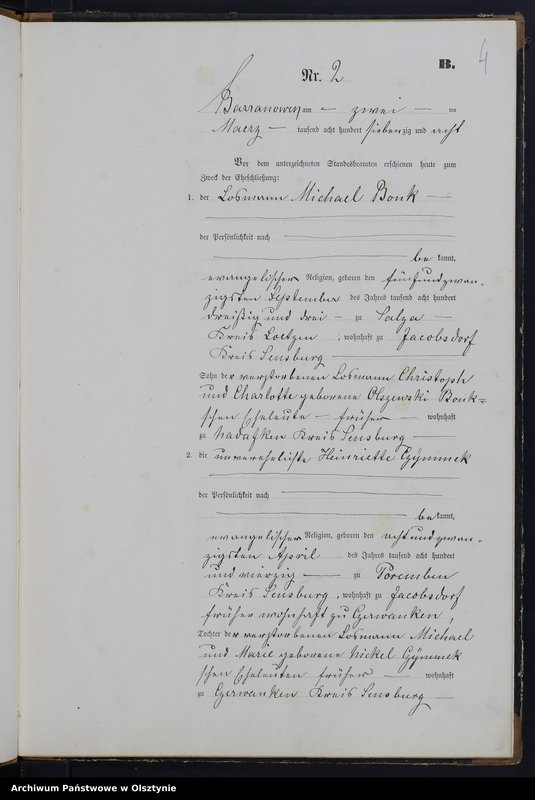 4
B.
Nr. 2
Barranowen am zwei ten
Maerz tausend acht hundert siebenzig und acht
Vor dem unterzeichneten Standesbeamten erschienen heute zum
Zweck der Eheschließung:
1. der Losmann Michael Bonk
der Persönlichkeit nach
be kannt,
evangelischer Religion, geboren den fünfundzwan-
zigsten September des Jahres tausend acht hundert
dreißig und drei zu Salza
Kreis Loetzen, wohnhaft zu Jacobsdorf
Kreis Sensburg
Sohn der verstorbenen Losmann Christoph
und Charlotte geborene Olszewski Bonk-
schen Eheleute früher wohnhaft
zu Kreis Sensburg
2. die unverehelichte Heinriette Czÿmmek
der Persönlichkeit nach
be kannt,
evangelischer Religion, geboren den achtundzwan-
zigsten April des Jahres tausend acht hundert
und vierzig zu Poremben
Kreis Sensburg, wohnhaft zu Jacobsdorf
früher wohnhaft zu Czerwanken,
Tochter der verstorbenen Losmann Michael
und Marie geborene Nickel Czÿmmek
schen Eheleuten früher wohnhaft
zu Czerwanken Kreis Sensburg
Archiwum Państwowe w Olsztynie